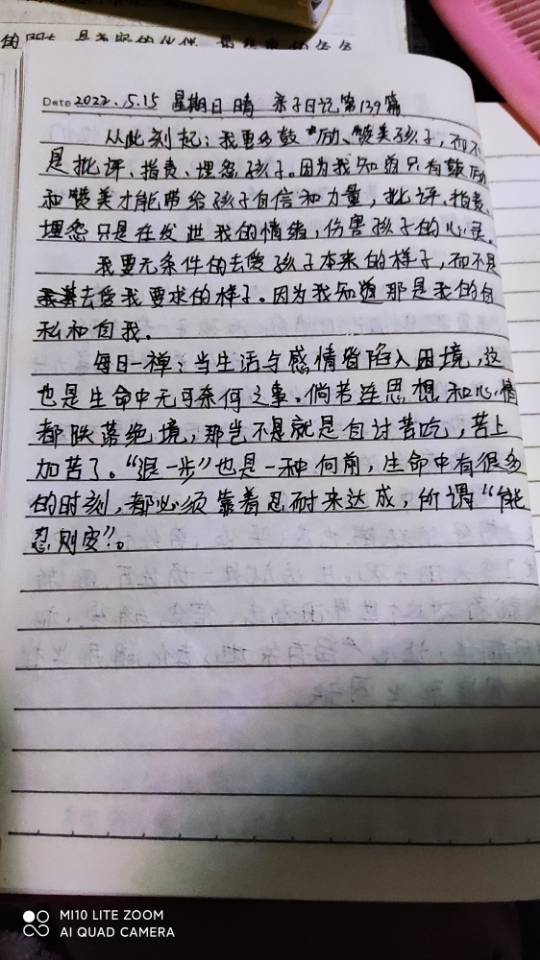 的朋友
Date 2022.5.15 星期日 晴 亲子日记第139篇
从此刻起：我要多鼓励、赞美孩子，而不
是批评、指责、埋怨孩子。因为我知道只有鼓励
和赞美才能带给孩子自信和力量，批评、指责、
埋怨只是在发泄我的情绪，伤害孩子的心灵。
我要无条件的去爱孩子本来的样子，而不是
去爱我要求的样子。因为我知道那是我的自
私和自我。
每日一禅：当生活与感情皆陷入困境，这
也是生命中无可奈何之事。倘若连思想和心情
都跌落绝境，那岂不是就是自讨苦吃，苦上
加苦了。“退一步”也是一种向前，生命中有很多
的时刻，都必须靠着忍耐来达成，所谓“能
忍则安”。
MI10 LITE ZOOM
AI QUAD CAMERA